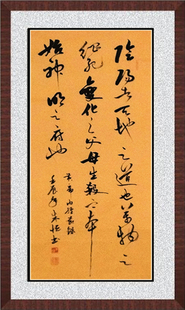 陰陽者天地之道也萬物之
纲纪變化之父母生殺之本
始神明之府也